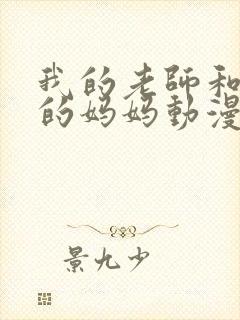 我的老師和
的妈妈動漫
景九少